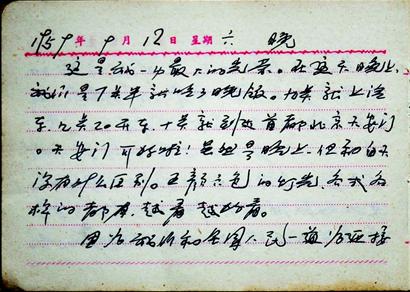 1959年9月12日星期六 晚
这是我一 最 的 景。在这天晚上
我们是下 半 吃了晚饭。 点就上汽
车,九点二十开车,十点就到 首都北京天安门
。天安门可好啦!虽然是晚上,但和白天
没有什么区别。五颜六色的灯光各式各
样的都有,越看越好看。
因为我们和全国人民一道为迎接